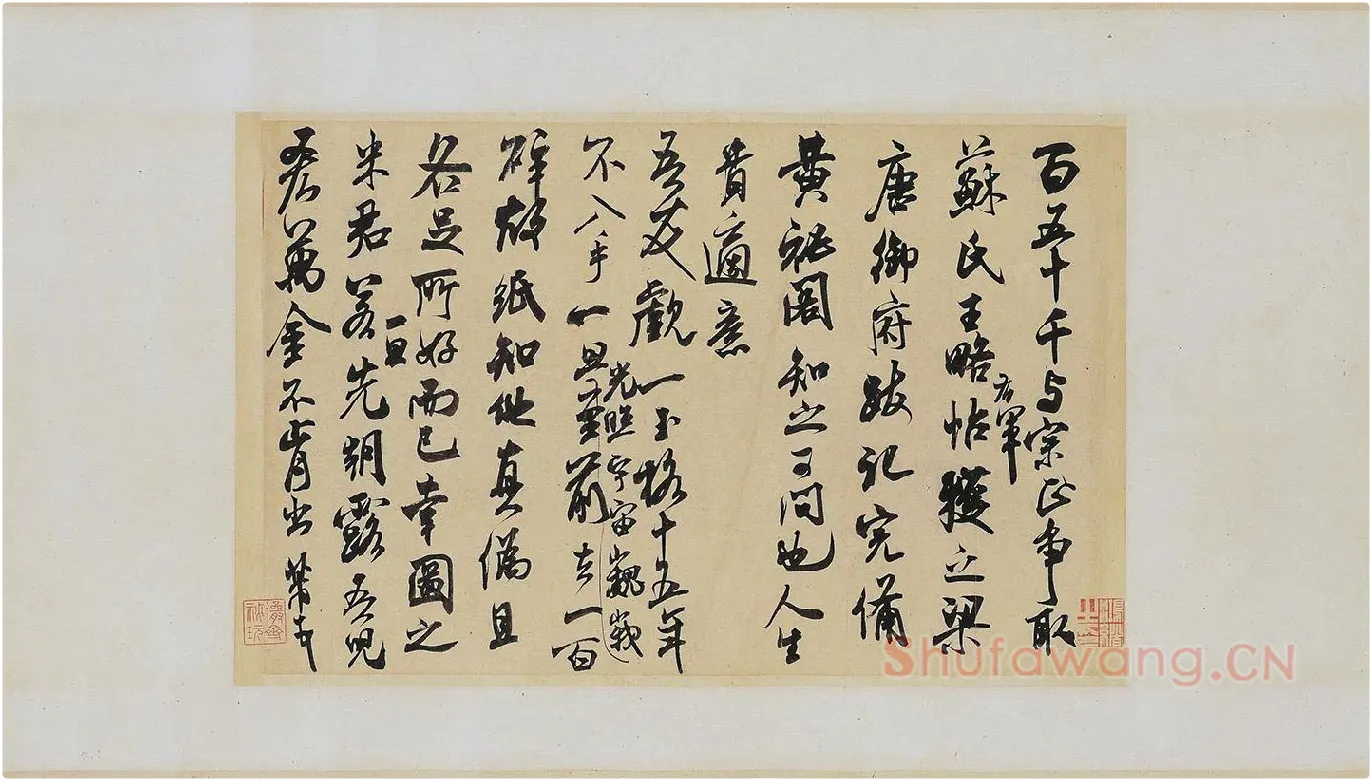 百五十千与宗正争取
蘇氏王略帖右軍獲之梁
唐御府跋記完備
黄祕閣知之可問也人生
貴適意
吾友覷一玉格十五年
不入手一旦光照宇宙巍峩至前去一百
碎故紙知他真僞且
各足所好而已幸圖之
米君若一旦先朝露吾兒
吝萬金不肯出芾頓首
Shufawang.CN